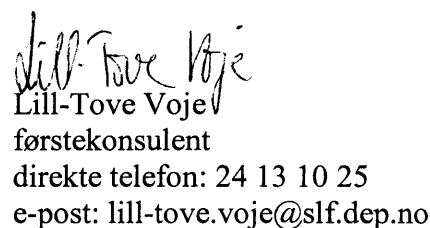 Lill-Tove Voje
Lill-Tove Voje
førstekonsulent
direkte telefon: 24 13 10 25
e-post: lill-tove.voje@slf.dep.no